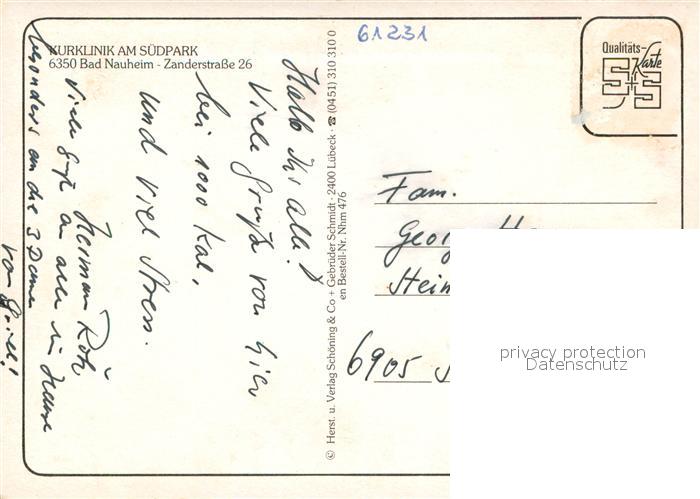 KURKLINIK AM SÜDPARK
6350 Bad Nauheim - Zanderstraße 26
61231
Qualitäts-
Karte
S+S
Hallo Ihr alle!
Viele Grüße von hier
bei 1000 Kal,
und viel Stress.
Herman
Viele Grüße an alle im Hause
besonders an die 3 Damen
von
© Herst. u. Verlag Schöning & Co + Gebrüder Schmidt · 2400 Lübeck · ☎ (0451) 310 310 0
en Bestell-Nr. Nhm 476
Fam.
Georg
6905
privacy protection
Datenschutz